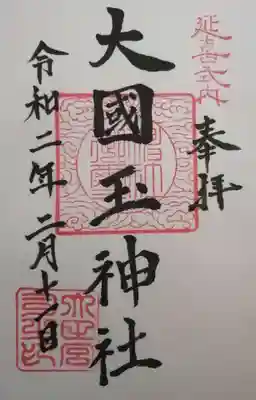 延喜式内
奉拝
大國玉神社
令和二年二月十一日